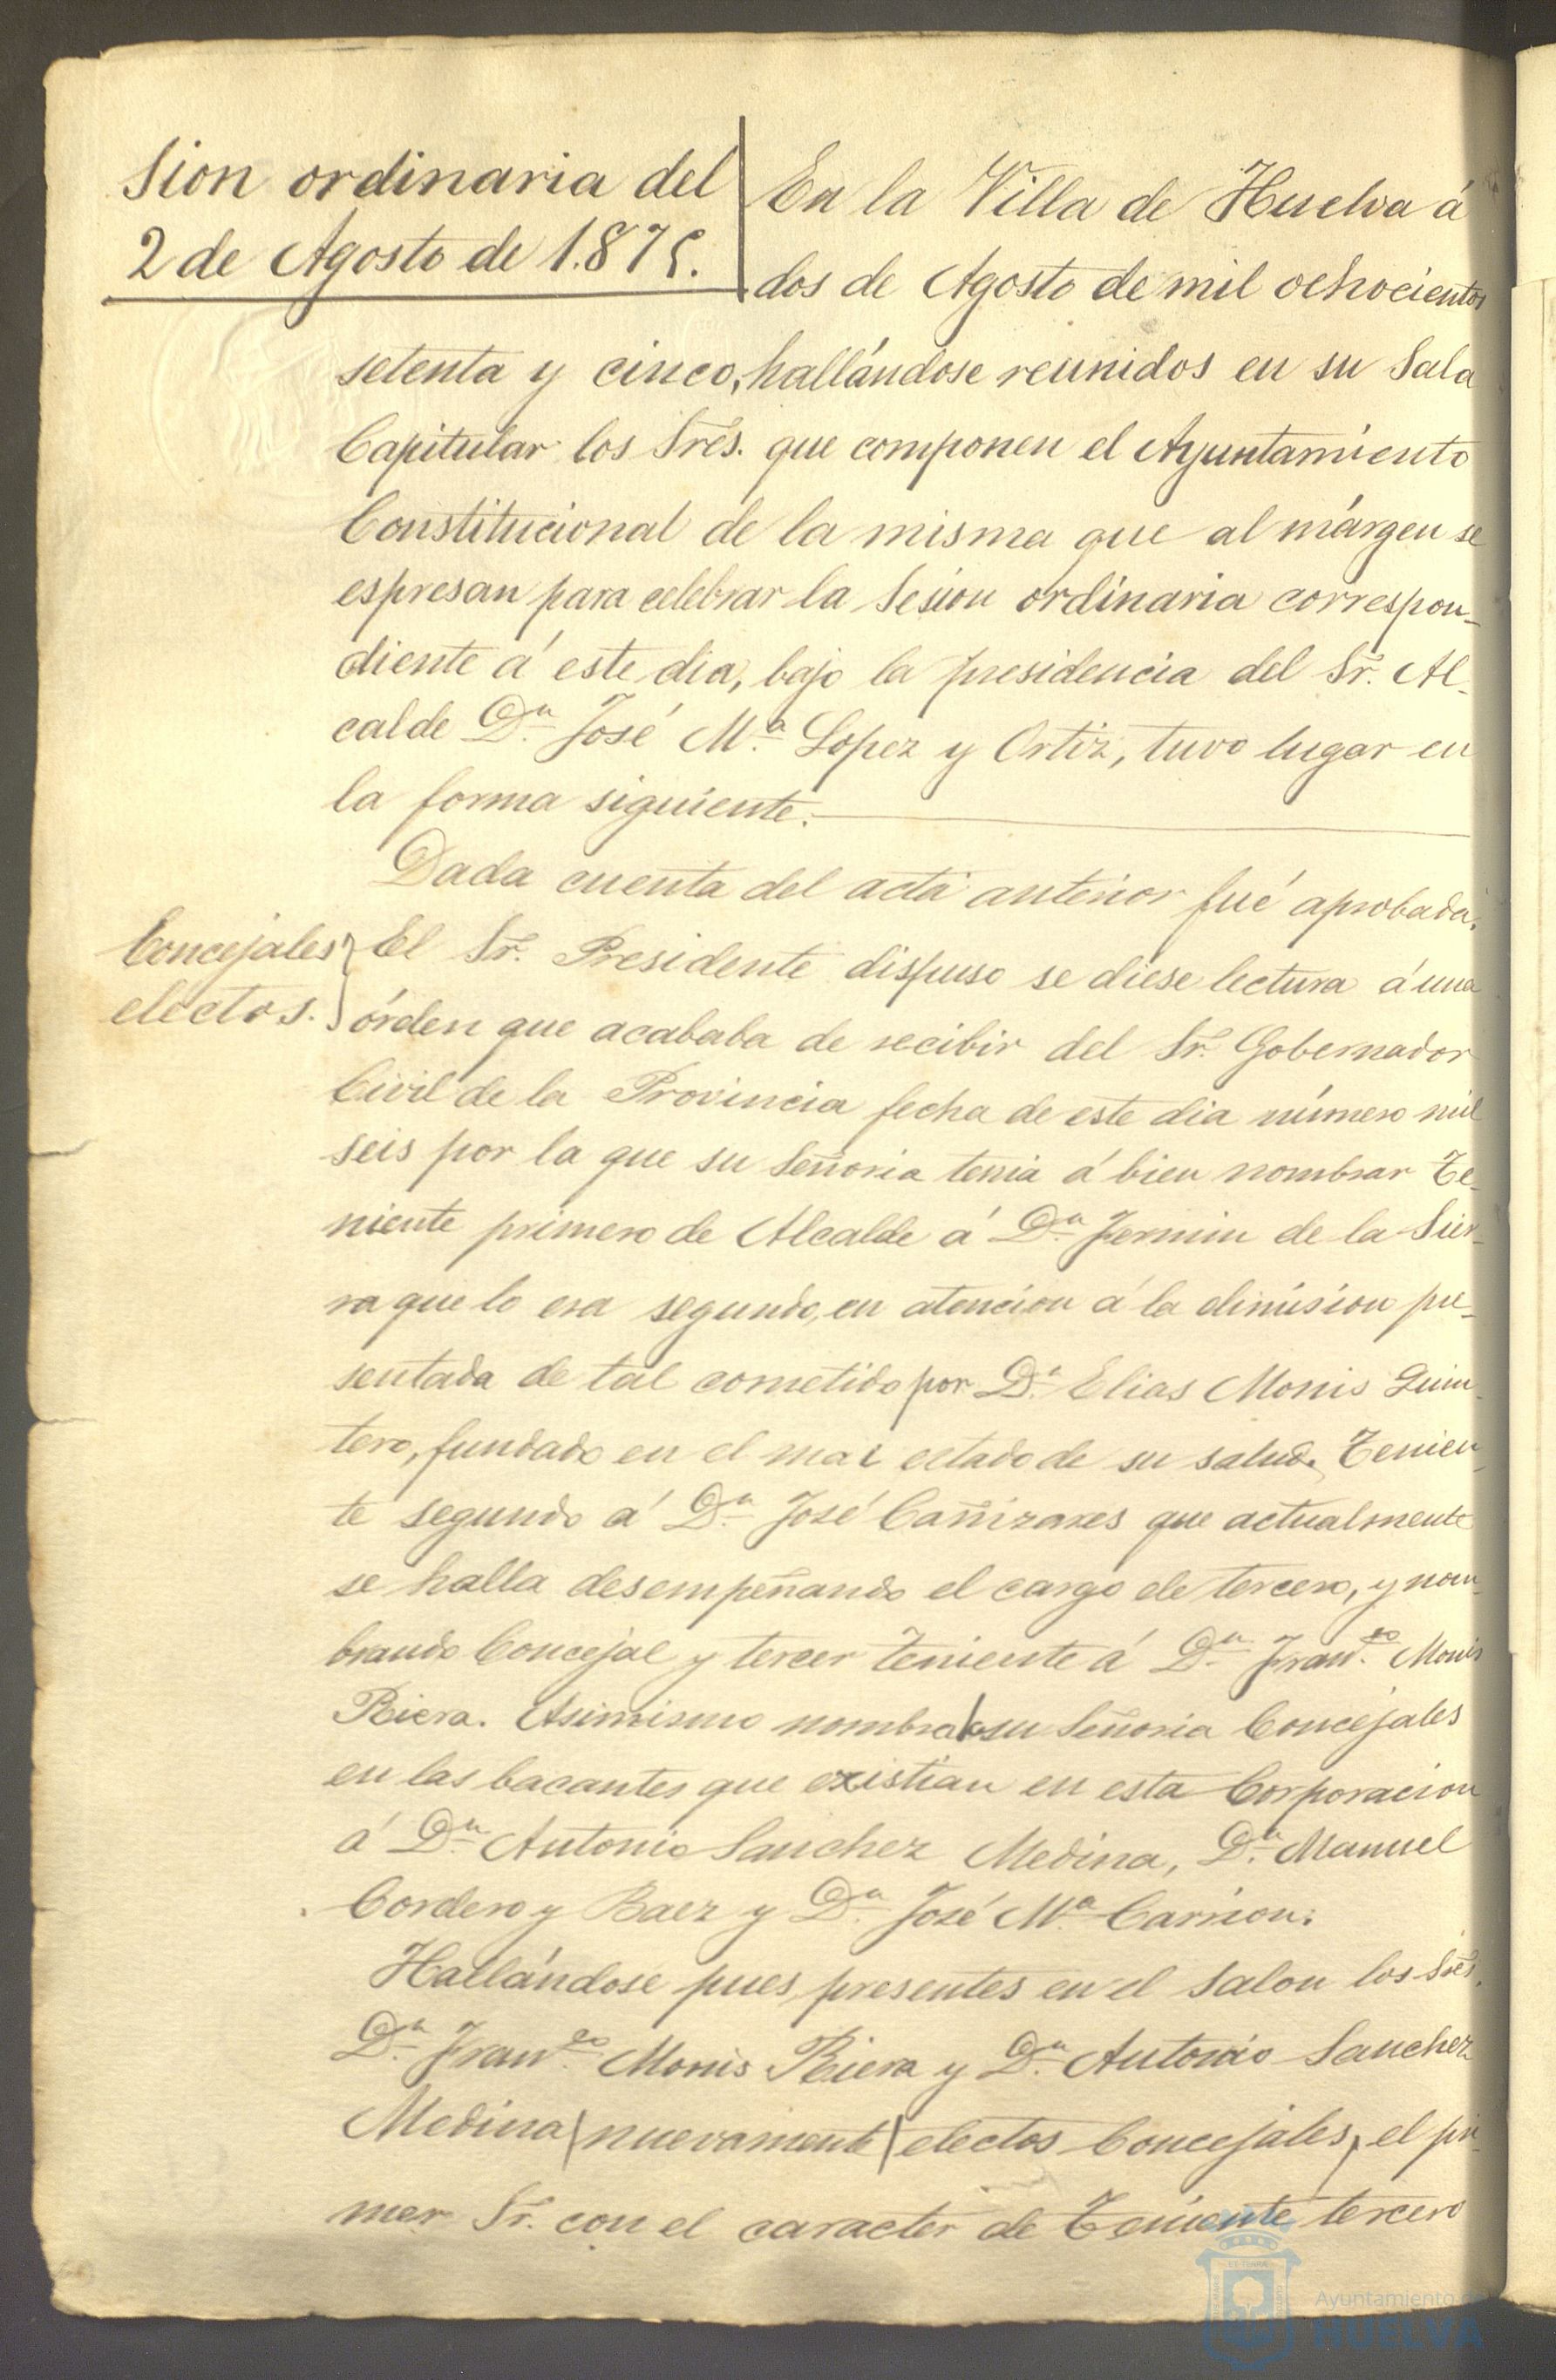 Sion ordinaria del
2 de Agosto de 1.875.
En la Villa de Huelva á
dos de Agosto de mil ochocientos
setenta y cinco, hallándose reunidos en su Sala
Capitular los Srés. que componen el Ayuntamiento
Constitucional de la misma que al márgen se
espresan para celebrar la Sesion ordinaria correspon-
diente á este dia, bajo la presidencia del Sr. Al-
calde Dn. José Mª. Lopez y Ortiz, tuvo lugar en
la forma siguiente.
Dada cuenta del acta anterior fué aprobada.
Concejales
electos.
El Sr. Presidente dispuso se diese lectura á una
órden que acababa de recibir del Sr. Gobernador
Civil de la Provincia fecha de este dia número mil
seis por la que su Señoria tenia á bien nombrar Te-
niente primero de Alcalde á Dn. Fermin de la Sier-
ra que lo era segundo, en atencion á la dimision pre-
sentada de tal cometido por Dn. Elias Monis Quin-
tero, fundado en el mal estado de su salud. Tenien-
te segundo á Dn. José Cañizares que actualmente
se halla desempeñando el cargo de tercero, y nom-
brando Concejal y tercer teniente á Dn. Franco. Monis
Riera. Asimismo nombraba su Señoria Concejales
en las bacantes que existian en esta Corporacion
á Dn. Antonio Sanchez Medina, Dn. Manuel
Cordero y Baez y Dn. José Mª. Carrion.
Hallándose pues, presentes en el Salon los Srés.
Dn. Franco. Monis Riera y Dn. Antonio Sanchez
Medina (nuevamente) electos Concejales, el pri-
mer Sr. con el caracter de Teniente tercero
Ayuntamiento de
HUELVA